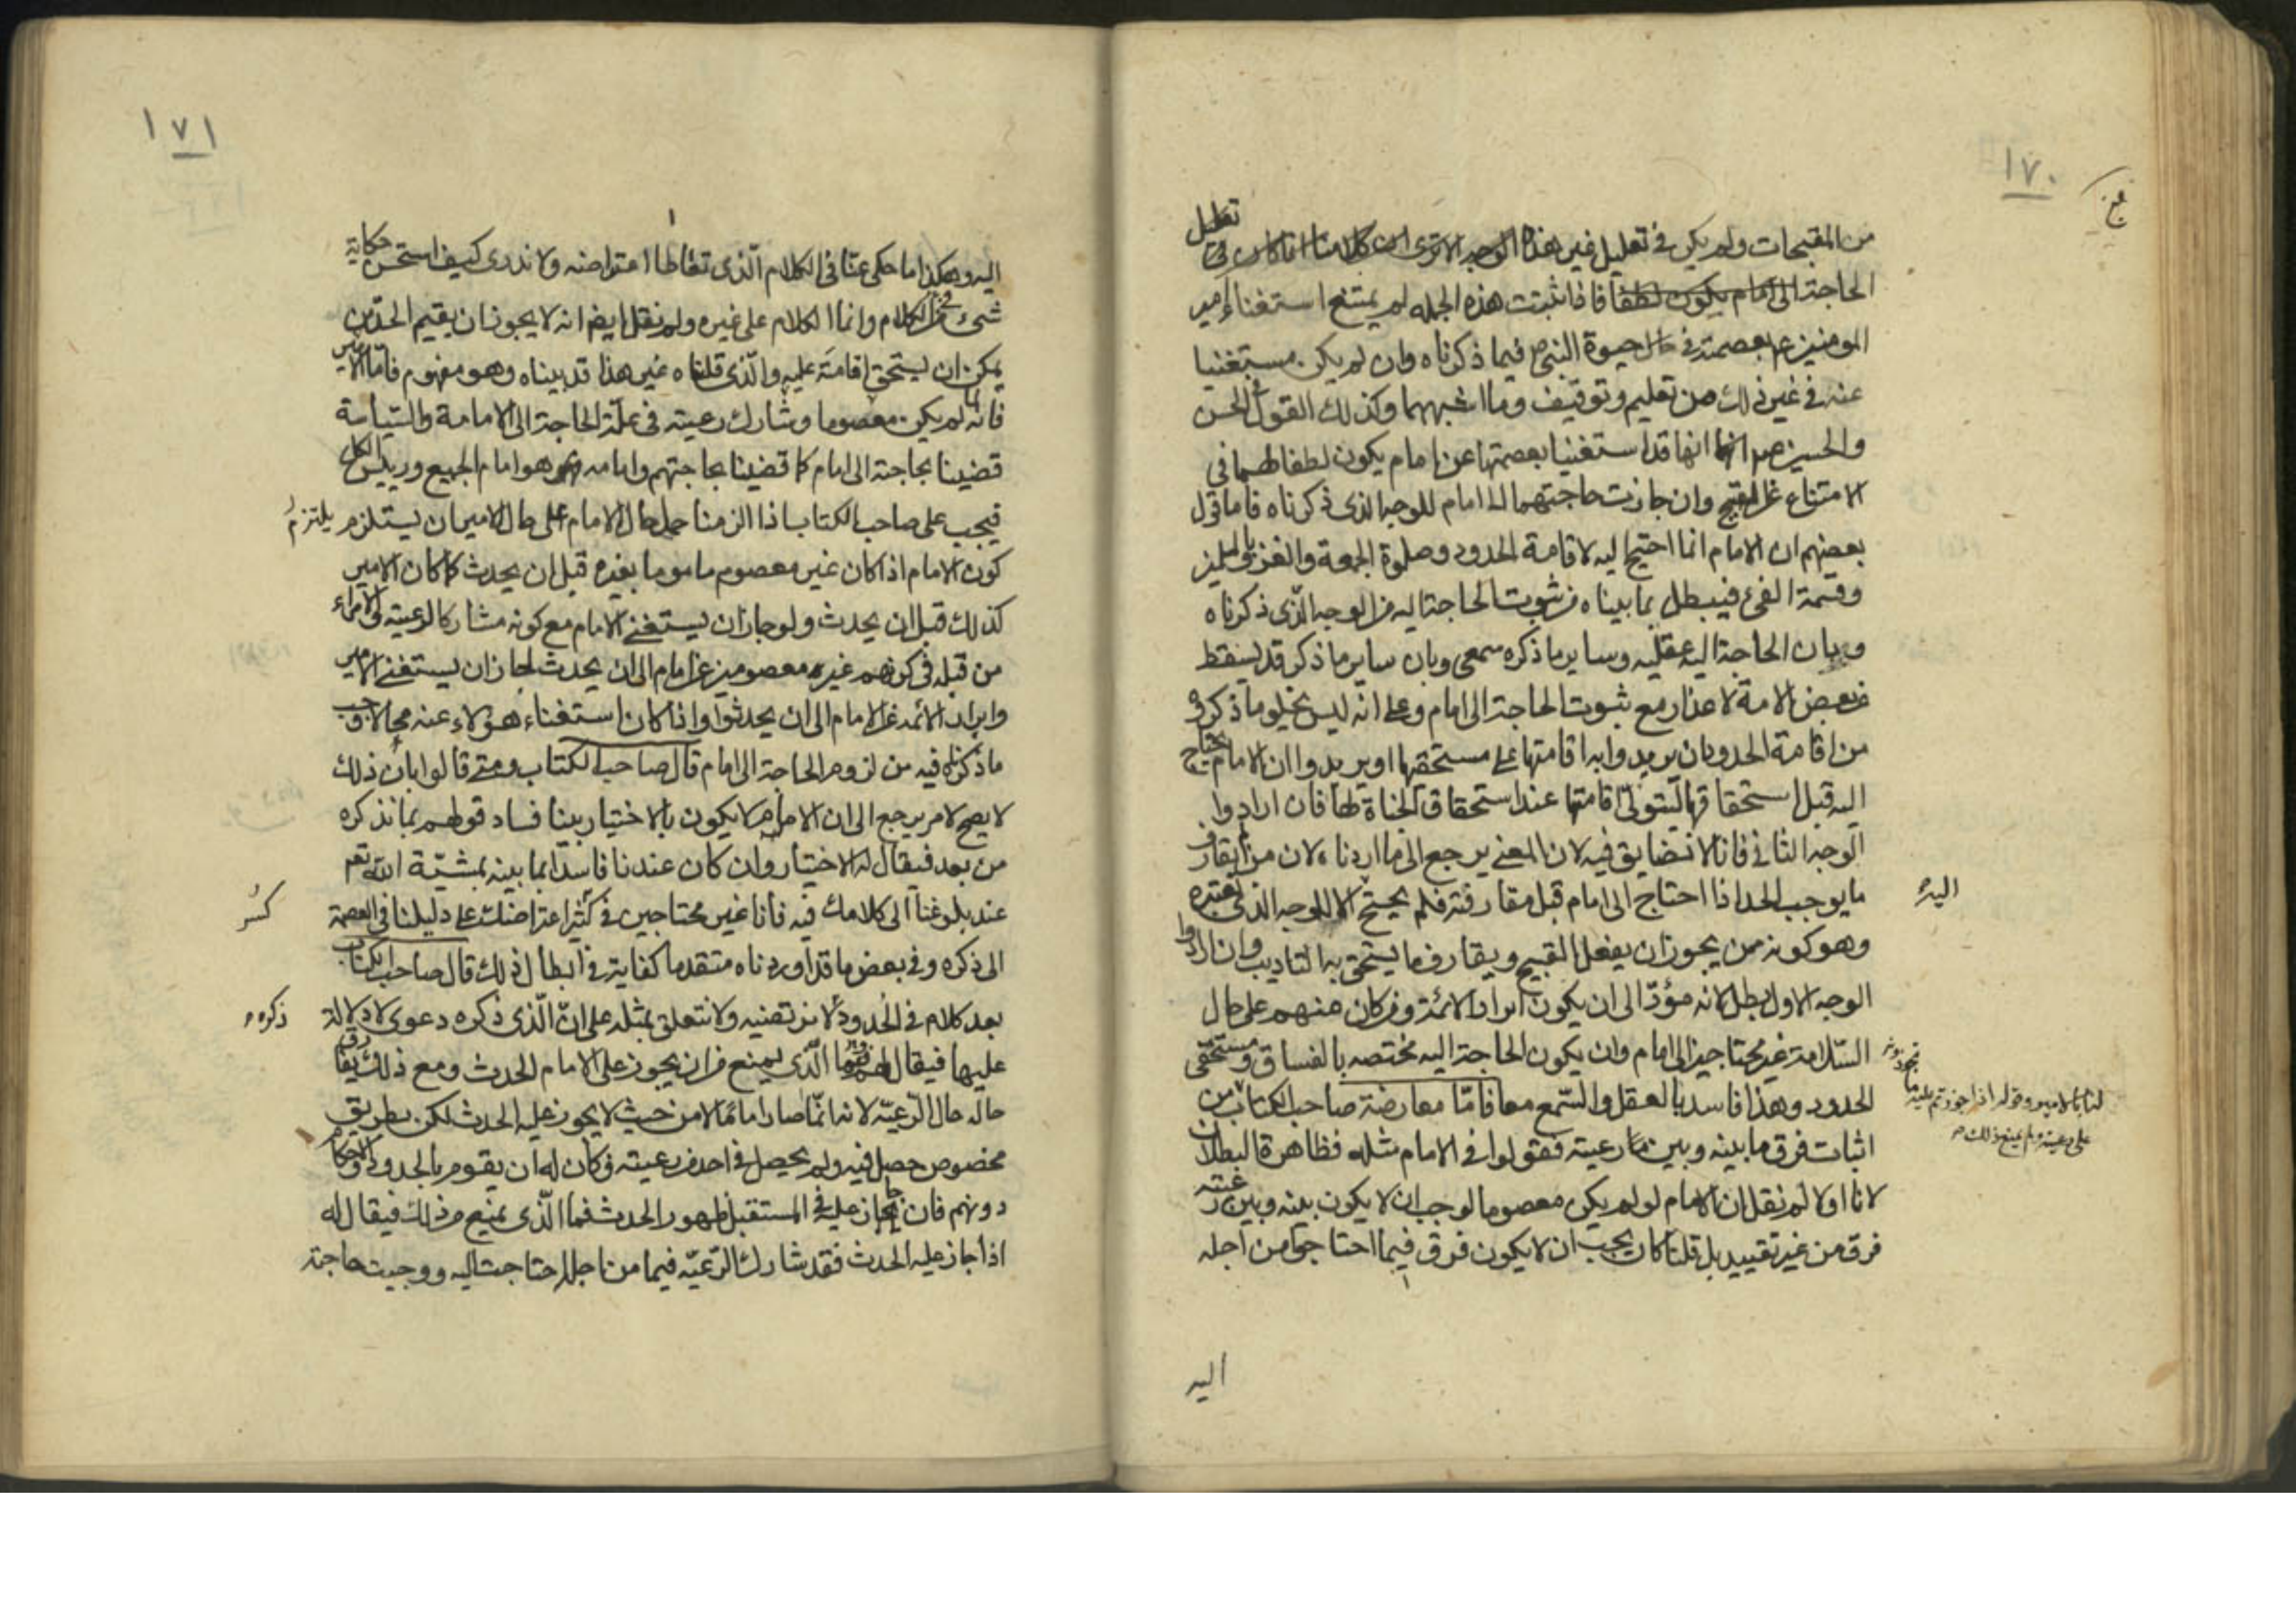 ١٧٠
من المقبحات ولم يكن في تعليل غير هذا الوجه الا ترى ان كلامنا انما كان في تعليل
الحاجة الى امام يكون لطفا فاذا ثبتت هذه الجمله لم يمتنع استغناء امير
المومنين ع بعصمته في حال حيوة النبي ص فيما ذكرناه وان لم يكن مستغنيا
عنه في غير ذلك من تعليم وتوقيف وما اشبههما وكذلك القول في الحسن
والحسين انهما قد استغنيا بعصمتهما عن امام يكون لطفا لهما في
الامتناع من القبيح وان جازت حاجتهما الى امام للوجه الذي ذكرناه فاما قول
بعضهم ان الامام انما احتيج اليه لاقامة الحدود وصلوة الجمعة والغزو بالمسلمين
وقسمة الفيء فيبطل بما بيناه من ثبوت الحاجة اليه من الوجه الذي ذكرناه
وبان الحاجة اليه عقليه وساير ما ذكره سمعي وبان ساير ما ذكر قد يسقط
عن بعض الامة لاعذار مع ثبوت الحاجة الى امام وعلى انه ليس يخلو ما ذكروه
من اقامة الحدود بان يريدوا به اقامتها على مستحقها او يريدوا ان الامام يحتاج
اليه قبل استحقاقها ليتولى اقامتها عند استحقاق الجناة لها فان ارادوا
الوجه الثاني فانا لا نضايق فيه لان المعنى يرجع الى ما اردناه لان من لم يقارف
ما يوجب الحد اذا احتاج الى امام قبل مقارفته فلم يحتج اليه الا للوجه الذي نعتبره
وهو كونه ممن يجوز ان يفعل القبيح ويقارف ما يستحق به التاديب وان ارادوا
الوجه الاول بطل لانه مؤدّ الى ان يكون ابرار الائمة ومن كان منهم على حال
السّلامة غير محتاجين الى امام وان يكون الحاجة اليه مختصه بالفساق ومستحقى
الحدود وهذا فاسد بالعقل والسّمع معا فامّا معارضة صاحب الكتاب
لنا بالامير وقوله اذا جوزتم عليه ما تجوزونه
على رعيته ولم يمنع ذلك من
اثبات فرق ما بينه وبين رعيته فقولوا في الامام مثله فظاهرة البطلان
لانا اولا لم نقل ان الامام لو لم يكن معصوما لوجب ان لا يكون بينه وبين رعيته
فرق من غير تقييد بل قلنا كان يجب ان لا يكون فرق فيما احتاجوا من اجله
اليه
١٧١
اليه وهكذا ما حكى عنا في الكلام الّذي تعاطا اعتراضه ولا ندري كيف استحسن حكاية
شئ من الكلام وانما الكلام على غيره ولم نقل ايضا انه لا يجوز ان يقيم الحدّ من
يمكن ان يستحق اقامته عليه والّذي قلناه غير هذا قد بيناه وهو مفهوم فامّا الامير
فانه لما لم يكن معصوما وشارك رعيته في علّة الحاجة الى الامامة والسّياسة
قضينا بحاجته الى امام كما قضينا بحاجتهم وامامه هو امام الجميع ورييس الكل
فيجب على صاحب الكتاب اذا الزمنا حمل حال الامام على حال الامير ان يستلزم يلتزم
كون الامام اذا كان غير معصوم ماموما بغيره قبل ان يحدث كما كان الامير
كذلك قبل ان يحدث ولو جاز ان يستغنى الامام مع كونه مشاركا لرعيته والامراء
من قبله في كونهم غير معصومين عن امام الى ان يحدث لجاز ان يستغنى الامير
وابرار الائمه عن الامام الى ان يحدثوا واذا كان استغناء هؤلاء عنه محالا وجب
ما ذكرناه فيه من لزوم الحاجة الى امام قال صاحب الكتاب ومتى قالوا بان ذلك
لا يصح لامر يرجع الى ان الامام لا يكون بالاختيار بينا فساد قولهم بما نذكره
من بعد فيقال له الاختيار وان كان عندنا فاسدا بما بينه بمشيّة الله تعم
عند بلوغنا الى كلامك فيه فانا غير محتاجين في كسر اعتراضك على دليلنا في العصمة
الى ذكره وفي بعض ما قد اوردناه متقدما كفاية في ابطال ذلك قال صاحب الكتاب
بعد كلام في الحدود لا نرتضيه ولا نتعلق بمثله على انّ الّذي ذكره دعوى لا دلالة
عليها فيقال لهم وما الّذي يمنع من ان يجوز على الامام الحدث ومع ذلك يفارق
حاله حال الرّعيّه لانه انّما صار اماما لا من حيث لا يجوز عليه الحدث لكن بطريق
مخصوص حصل فيه ولم يحصل في احد من رعيته وكان له ان يقوم بالحدود والاحكام
دونهم فان جاز عليه في المستقبل ظهور الحدث فما الّذي يمنع من ذلك فيقال له
اذا جاز عليه الحدث فقد شارك الرّعيّه فيما من اجله احتاجت اليه ووجبت حاجته